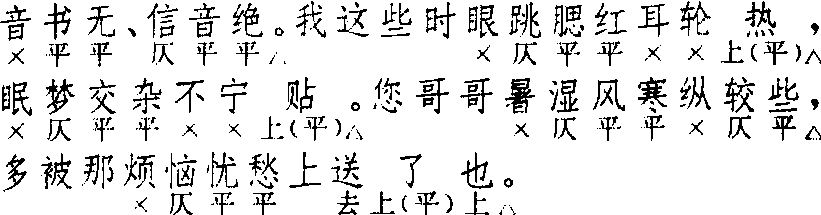 音书无、信音绝。我这些时眼跳腮红耳轮热，
×平平仄平平△×仄平平××上(平)△
眠梦交杂不宁贴。您哥哥暑湿风寒纵较些，
×仄平平××上(平)△×仄平平×仄平△
多被那烦恼忧愁上送了也。
×仄平平去上(平)上△